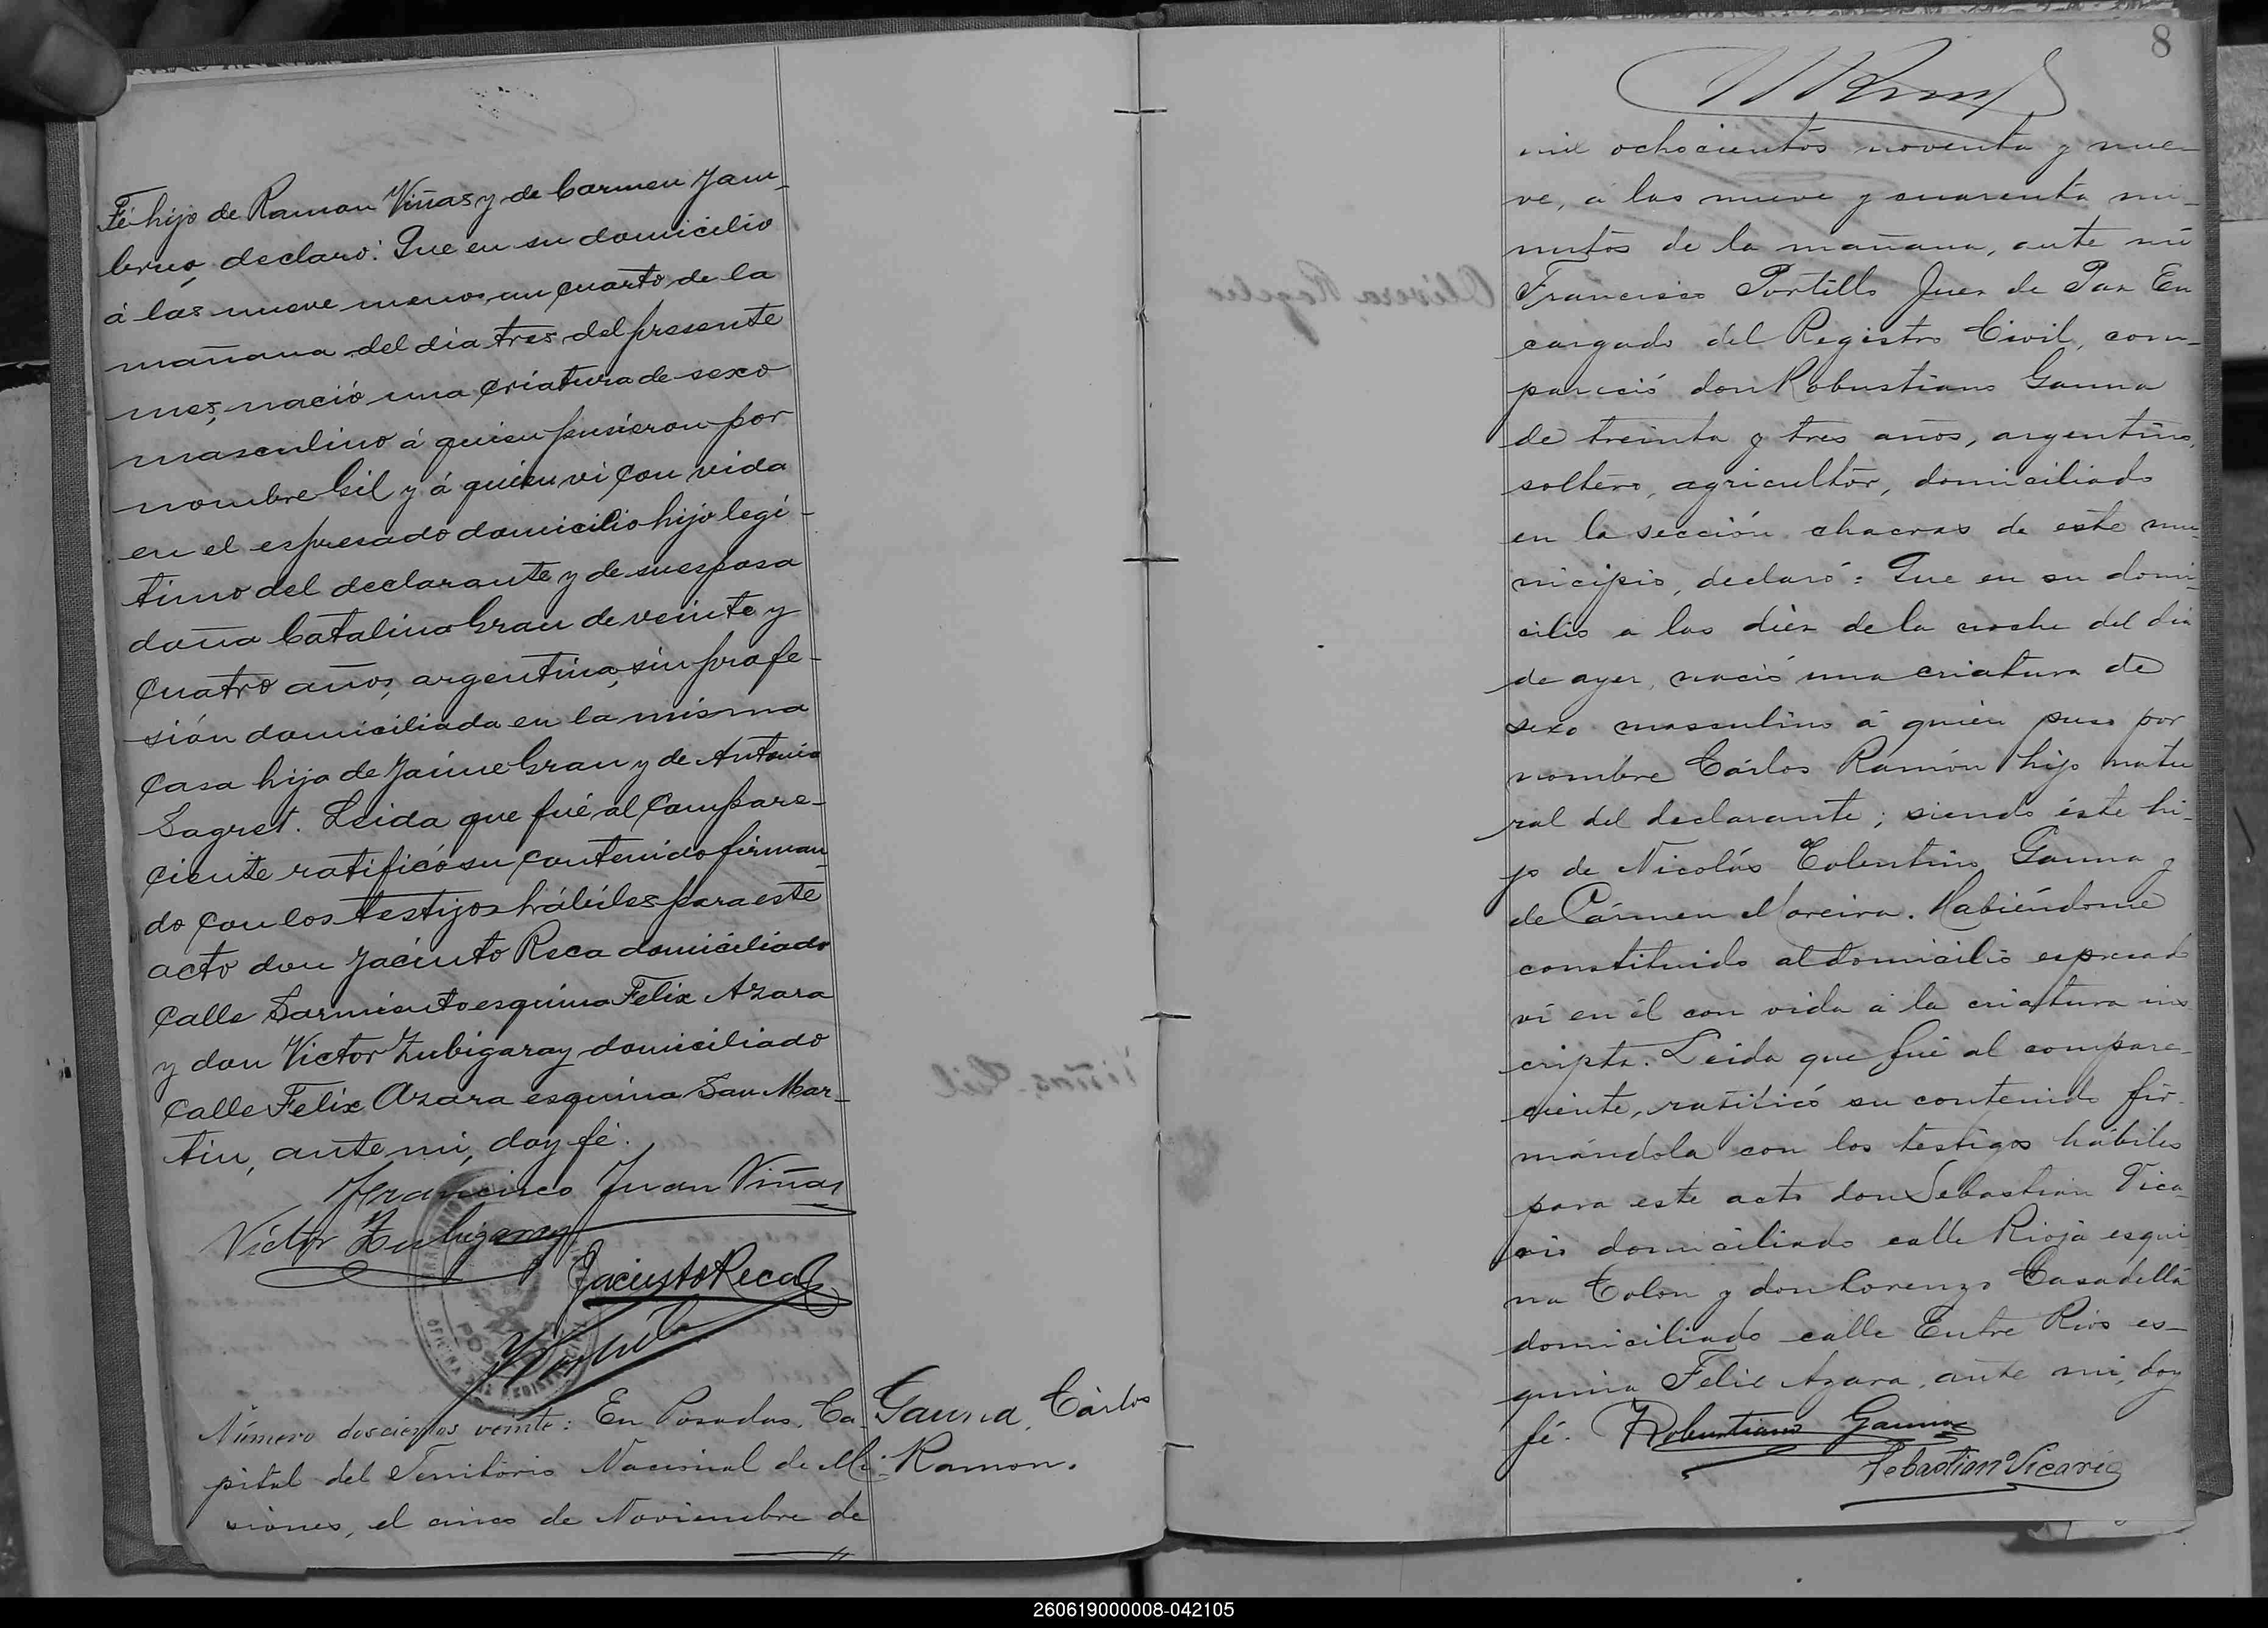 Fé hijo de Ramon Viñas y de Carmen Jam-
brno, declaró: Que en su domicilio
á las nueve menos un cuarto de la
mañana del dia tres del presente
mes, nació una criatura de sexo
masculino á quien pusieron por
nombre Gil y á quien vi con vida
en el espresado domicilio hijo legi-
timo del declarante y de su esposa
doña Catalina Grau de veinte y
cuatro años, argentina, sin profe-
sión domiciliada en la misma
casa hija de Jaime Grau y de Antonia
Sagret. Leida que fué al compare-
ciente ratificó su contenido firman-
do con los testigos hábiles para este
acto don Jacinto Reca domiciliado
calle Sarmiento esquina Felix Azara
y don Victor Zubigaray domiciliado
calle Felix Azara esquina San Mar-
tin, ante mi, doy fé.
Francisco Juan Viñas
Victor Zubigaray
Jacinto Reca
Número doscientos veinte: En Posadas, Ca-
pital del Territorio Nacional de Mi-
siones, el cinco de Noviembre de
Gauna, Cárlos
Ramon.
8
mil ochocientos noventa y nue-
ve, á las nueve y cuarenta mi-
nutos de la mañana, ante mi
Francisco Portillo Juez de Paz En
cargado del Registro Civil, com-
pareció don Robustiano Gauna
de treinta y tres años, argentino,
soltero, agricultor, domiciliado
en la sección chacras de este mu-
nicipio, declaró: Que en su domi-
cilio a las diéz de la noche del dia
de ayer, nació una criatura de
sexo masculino á quien puso por
nombre Cárlos Ramón hijo natu
ral del declarante; siendo éste hi-
jo de Nicolás Tolentino Gauna y
de Cármen Moreira. Habiéndome
constituido al domicilio espresado
vi en él con vida á la criatura ins
cripta. Leida que fué al compare-
ciente, ratificó su contenido fir-
mándola con los testigos hábiles
para este acto don Sebastián Vica-
rio domiciliado calle Rioja esqui
na Colon y don Lorenzo Casadellá
domiciliado calle Entre Rios es-
quina Felix Azara, ante mi, doy
fé. Robustiano Gauna
Sebastian Vicario
260619000008-042105